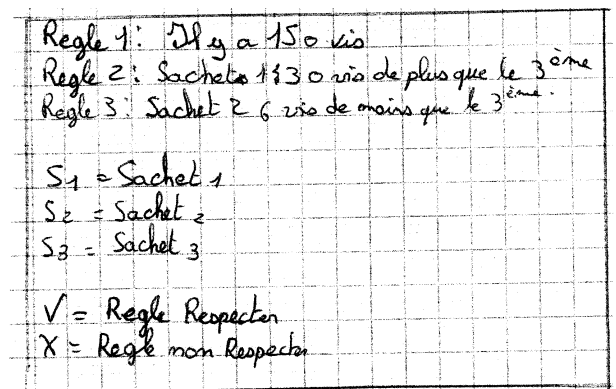 Regle 1: Il y a 150 vis
Regle 2: Sachets 1 : 30 vis de plus que le 3ème
Regle 3: Sachet 2 6 vis de moins que le 3ème.
S1 = Sachet 1
S2 = Sachet 2
S3 = Sachet 3
V = Regle Respecter
X = Regle non Respecter